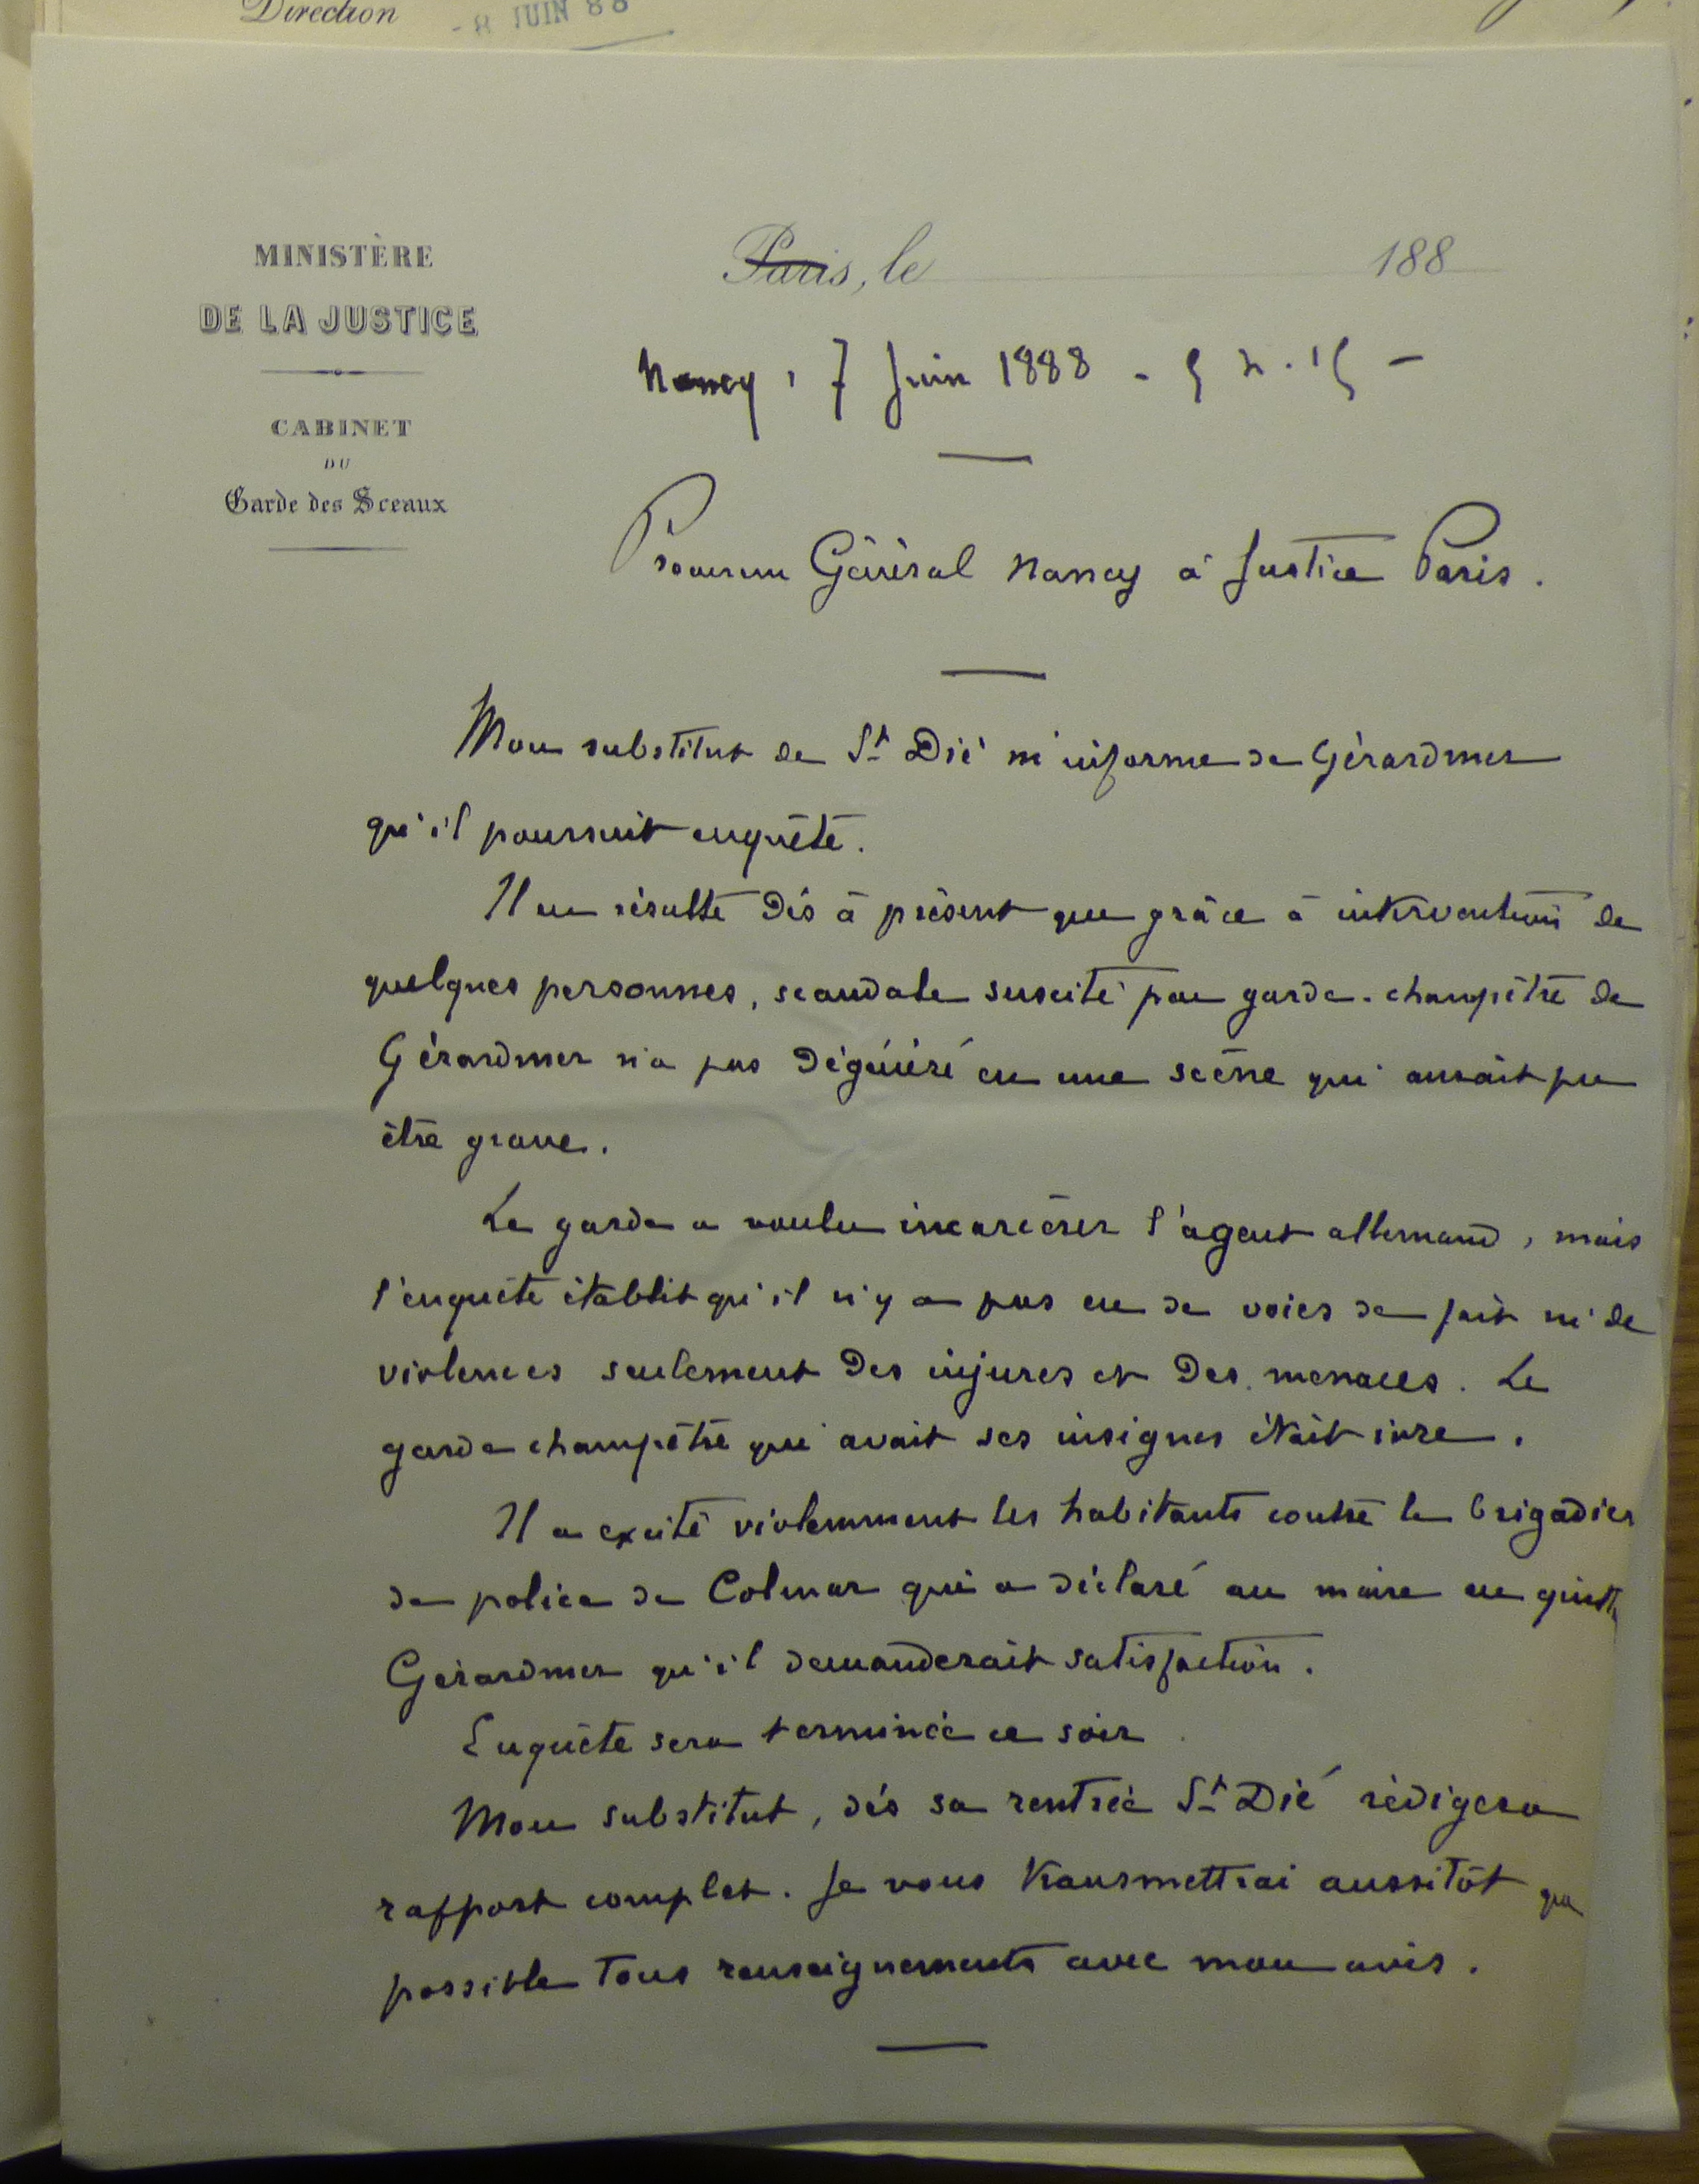 Direction
- 8 JUIN 88
MINISTÈRE
DE LA JUSTICE
CABINET
DU
Garde des Sceaux
Paris, le 188
Nancy, 7 Juin 1888 - 5 h. 15 -
Procureur Général Nancy à Justice Paris.
Mon substitut de St Dié m'informe de Gérardmer
qu'il poursuit enquête.
Il en résulte dès à présent que grâce à intervention de
quelques personnes, scandale suscité par garde-champêtre de
Gérardmer n'a pas dégénéré en une scène qui aurait pu
être grave.
Le garde a voulu incarcérer l'agent allemand, mais
l'enquête établit qu'il n'y a pas eu de voies de fait ni de
violences seulement des injures et des menaces. Le
garde champêtre qui avait ses insignes était ivre.
Il a excité violemment les habitants contre le brigadier
de police de Colmar qui a déclaré au maire en
Gérardmer qu'il demanderait satisfaction.
Enquête sera terminée ce soir
Mon substitut, dès sa rentrée St Dié rédigera
rapport complet. Je vous transmettrai aussitôt que
possible tous renseignements avec mon avis.